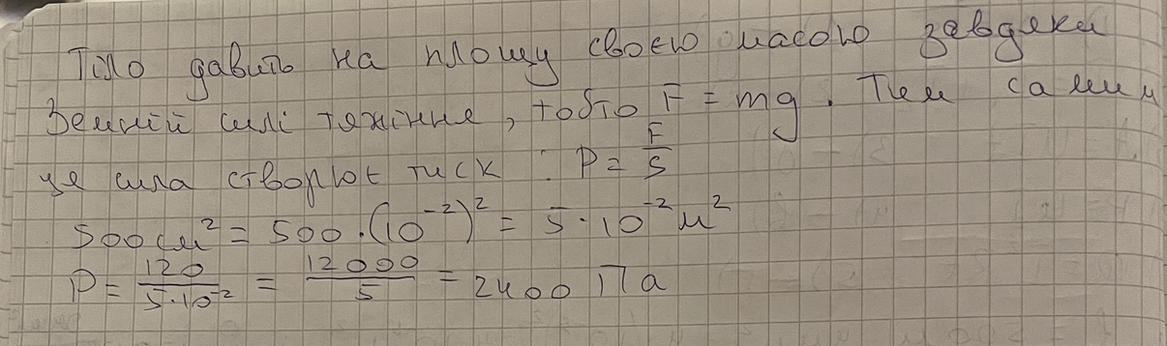 Тіло давить на площу своєю масою завдяки
Земній силі тяжіння, тобто F = mg. Тим самим
це сила створює тиск : P = F/S
500 см² = 500·(10⁻²)² = 5·10⁻² м²
P = 120/5·10⁻² = 12000/5 = 2400 Па